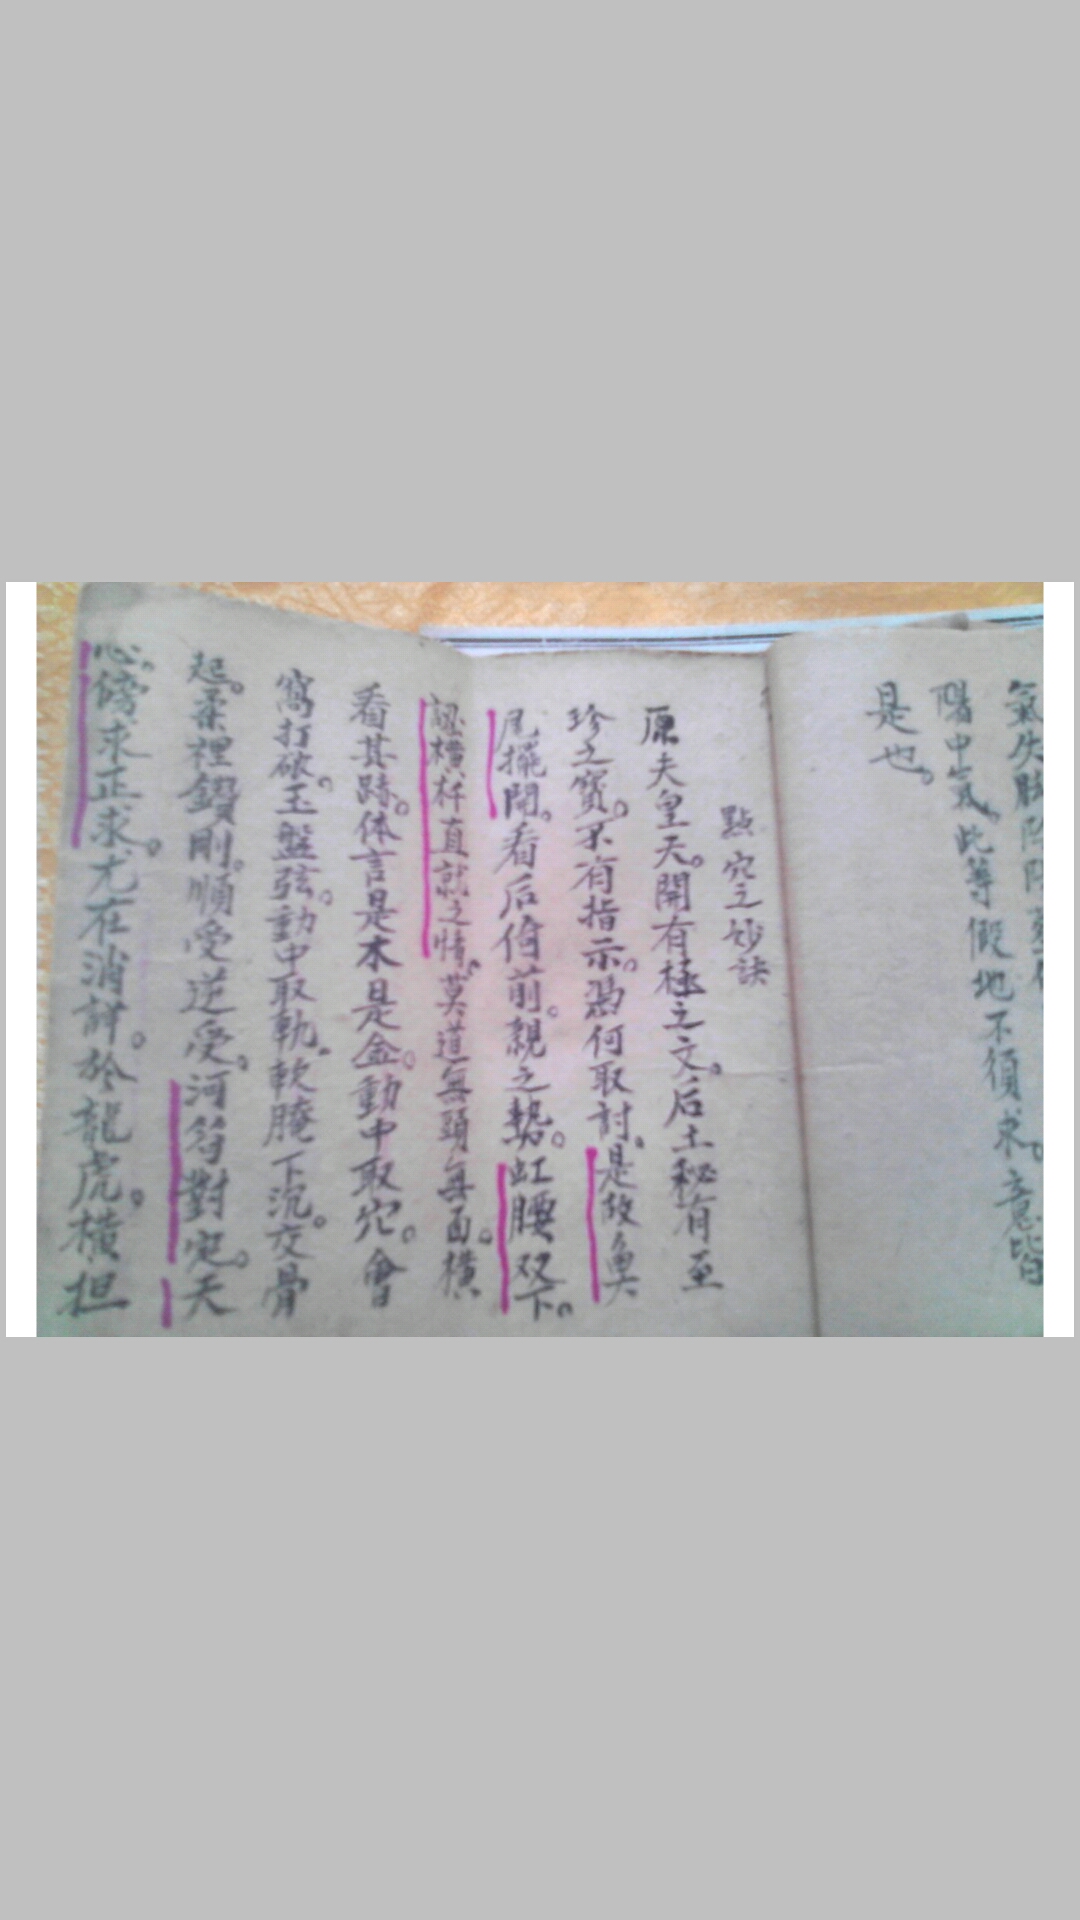 氣失脱陰陽
陽中氣。此等假地不須求。意皆
是也。
點穴之妙訣
原夫皇天。開有極之文。后土秘有至
珍之寳。不有指示。憑何取討。是故魚
尾擺開。看后倚前。親之勢。虹腰双下。
認橫杆直就之情。莫道無頭無面。橫
看其跡。体言是木是金。動中取穴。會
窩打破。玉盤弦。動中取軌。軟腌下沉。皮骨
起。柔裡鑽剛。順受逆受。河符對定。天
心。傍求正求。尤在消詳。於龍虎。橫担